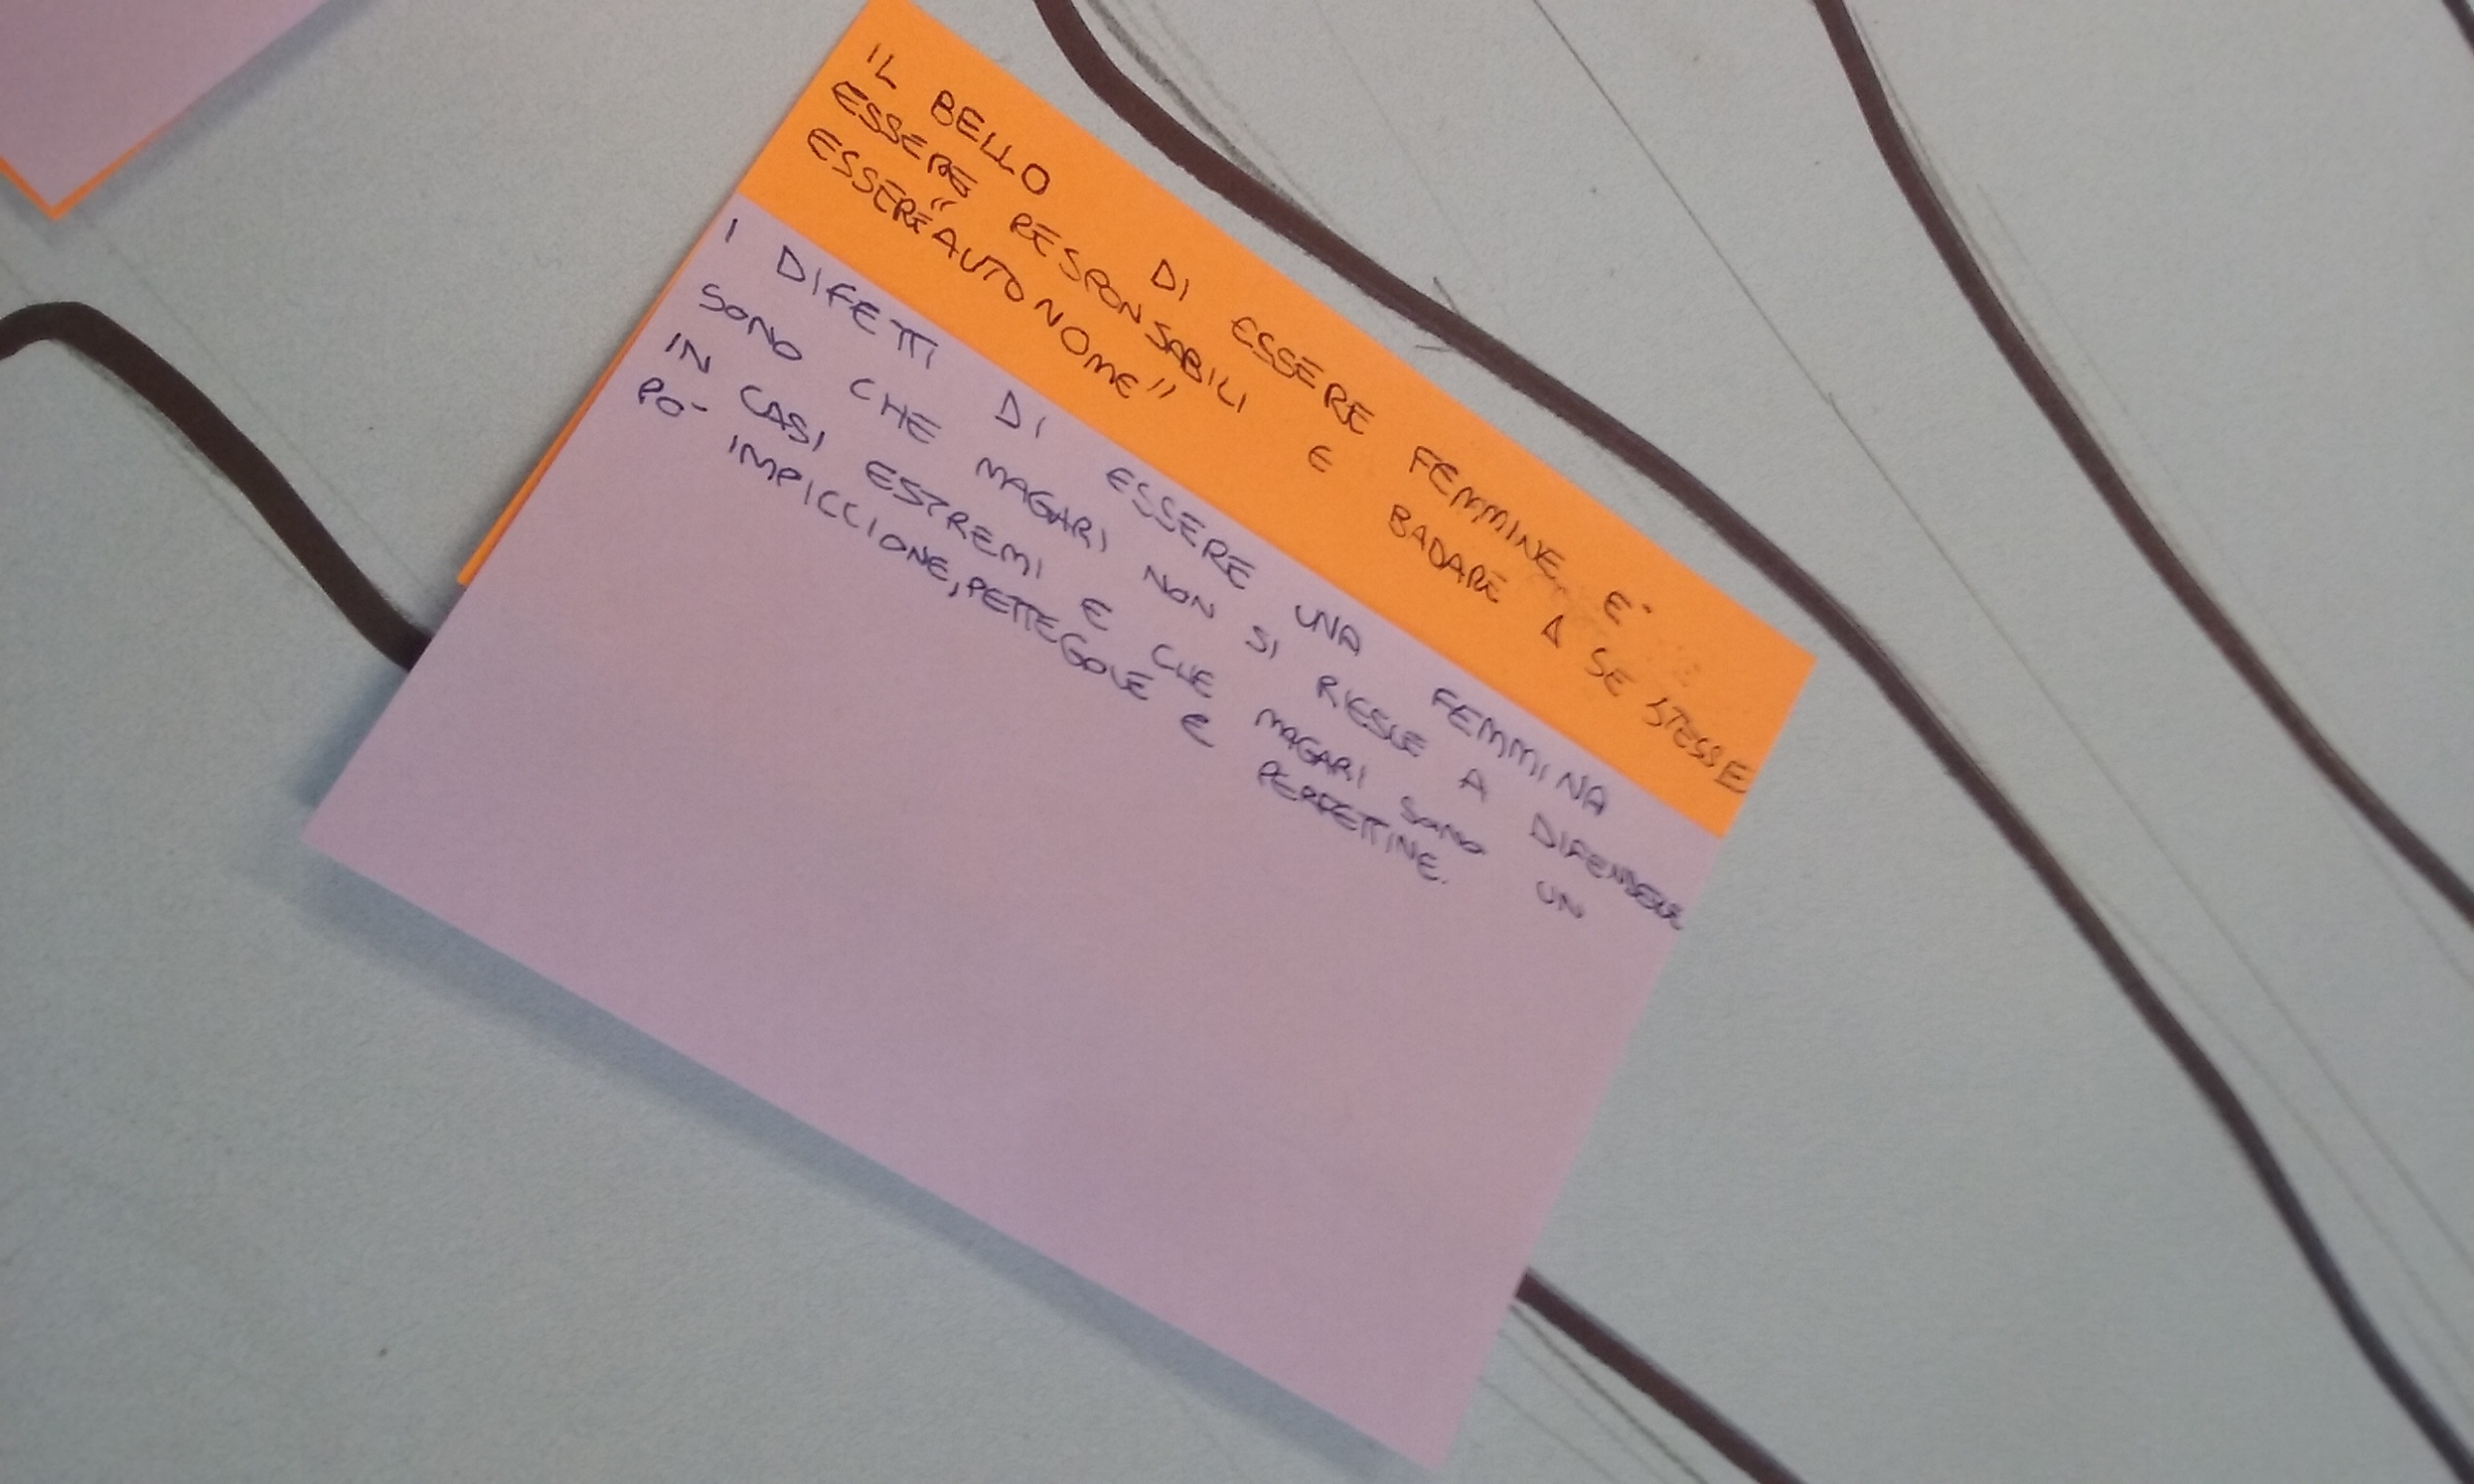 IL BELLO DI ESSERE FEMMINE E'
ESSERE RESPONSABILI E BADARE A SE STESSE
ESSERE "AUTONOME"
I DIFETTI DI ESSERE UNA FEMMINA
SONO CHE MAGARI NON SI RIESCE A DIFENDERE
IN CASI ESTREMI E CHE MAGARI SONO UN
PO' IMPICCIONE, PETTEGOLE E PERFETTINE.